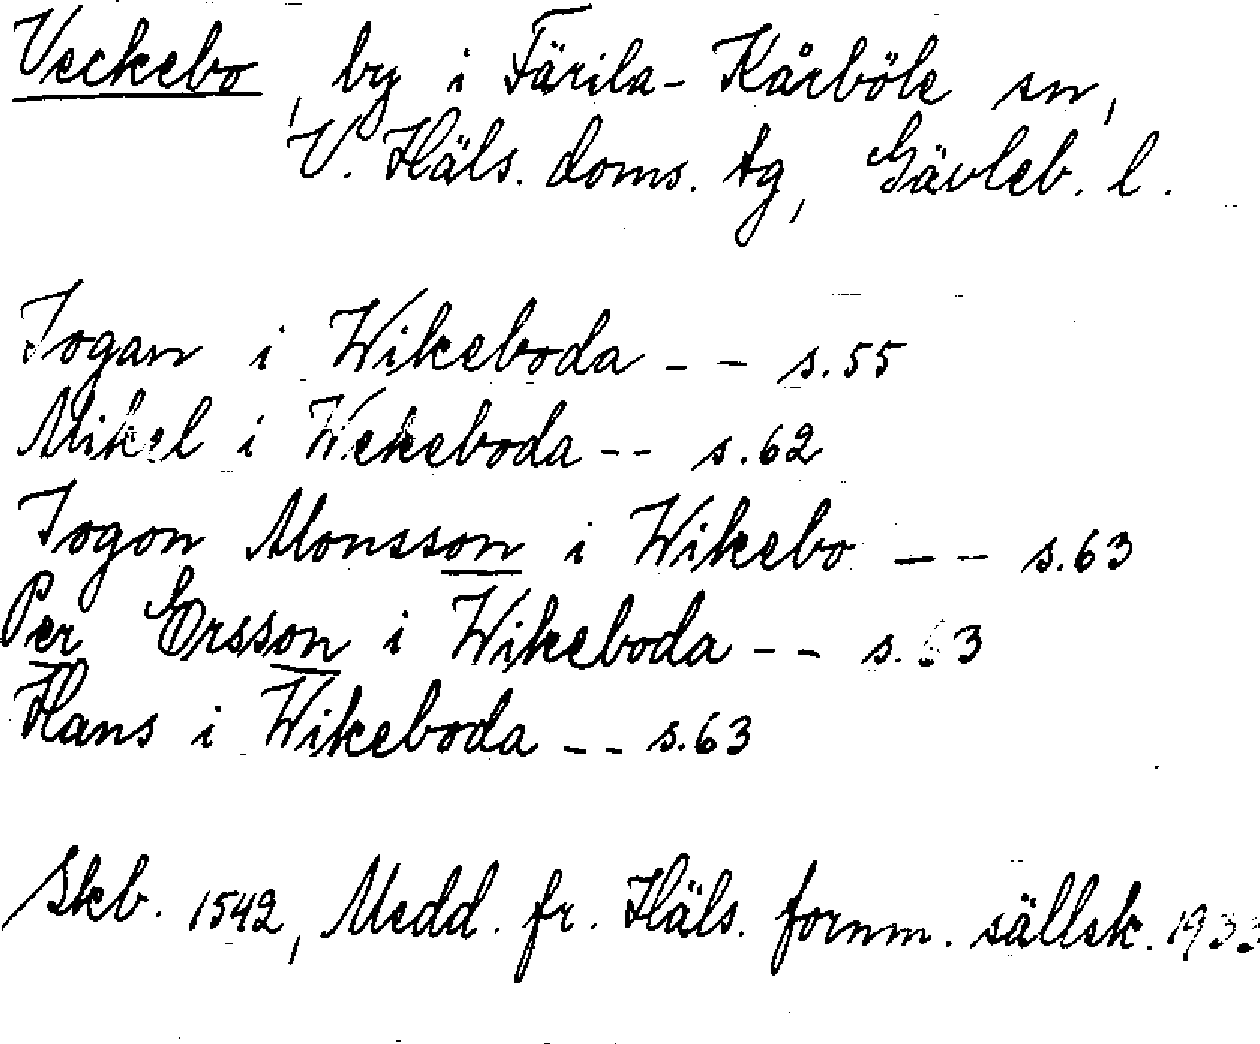 Veckebo, by i Färila-Kårböle sn,
V. Häls. doms. tg, Gävleb. l.
Jogan i Wikeboda -- s.55
Mikel i Wekeboda -- s.62
Jogon Monsson i Wikebo -- s.63
Per Ersson i Wikeboda -- s.63
Hans i Wikeboda -- s.63
Skb. 1542, Medd. fr. Häls. fornm. sällsk. 1933